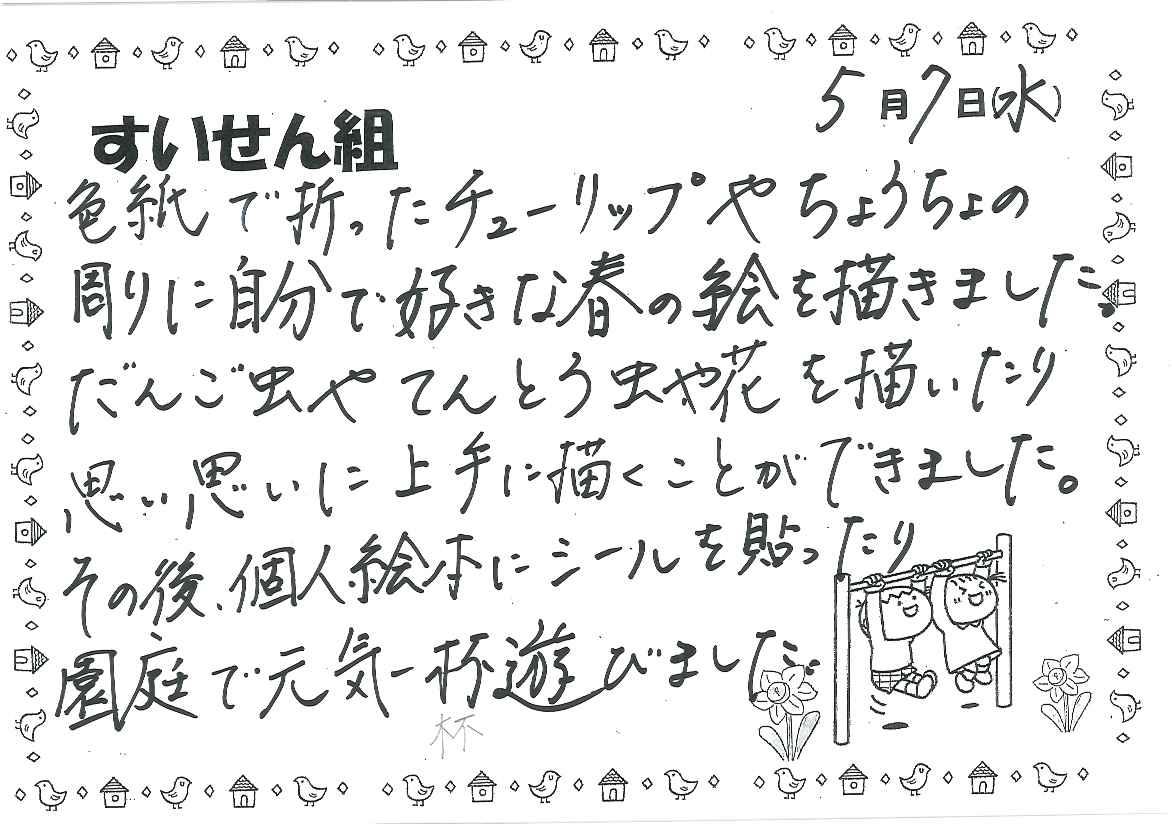 5月7日(水)
すいせん組
色紙で折ったチューリップやちょうちょの
周りに自分で好きな春の絵を描きました。
だんご虫やてんとう虫や花を描いたり
思い思いに上手に描くことができました。
その後、個人絵本にシールを貼ったり
園庭で元気一杯遊びました。
杯